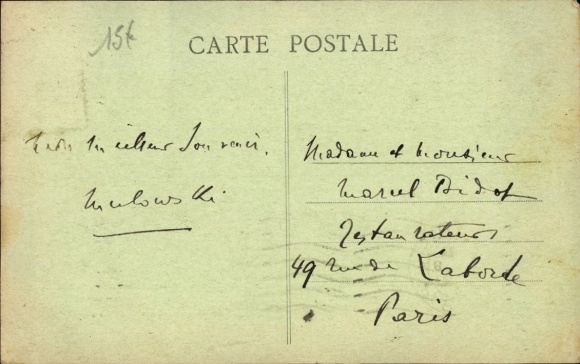 15f
CARTE POSTALE
mon meilleur souvenir.
Madame et Monsieur
Marcel Bidot
Restaurateurs
49 rue de Laborde
Paris